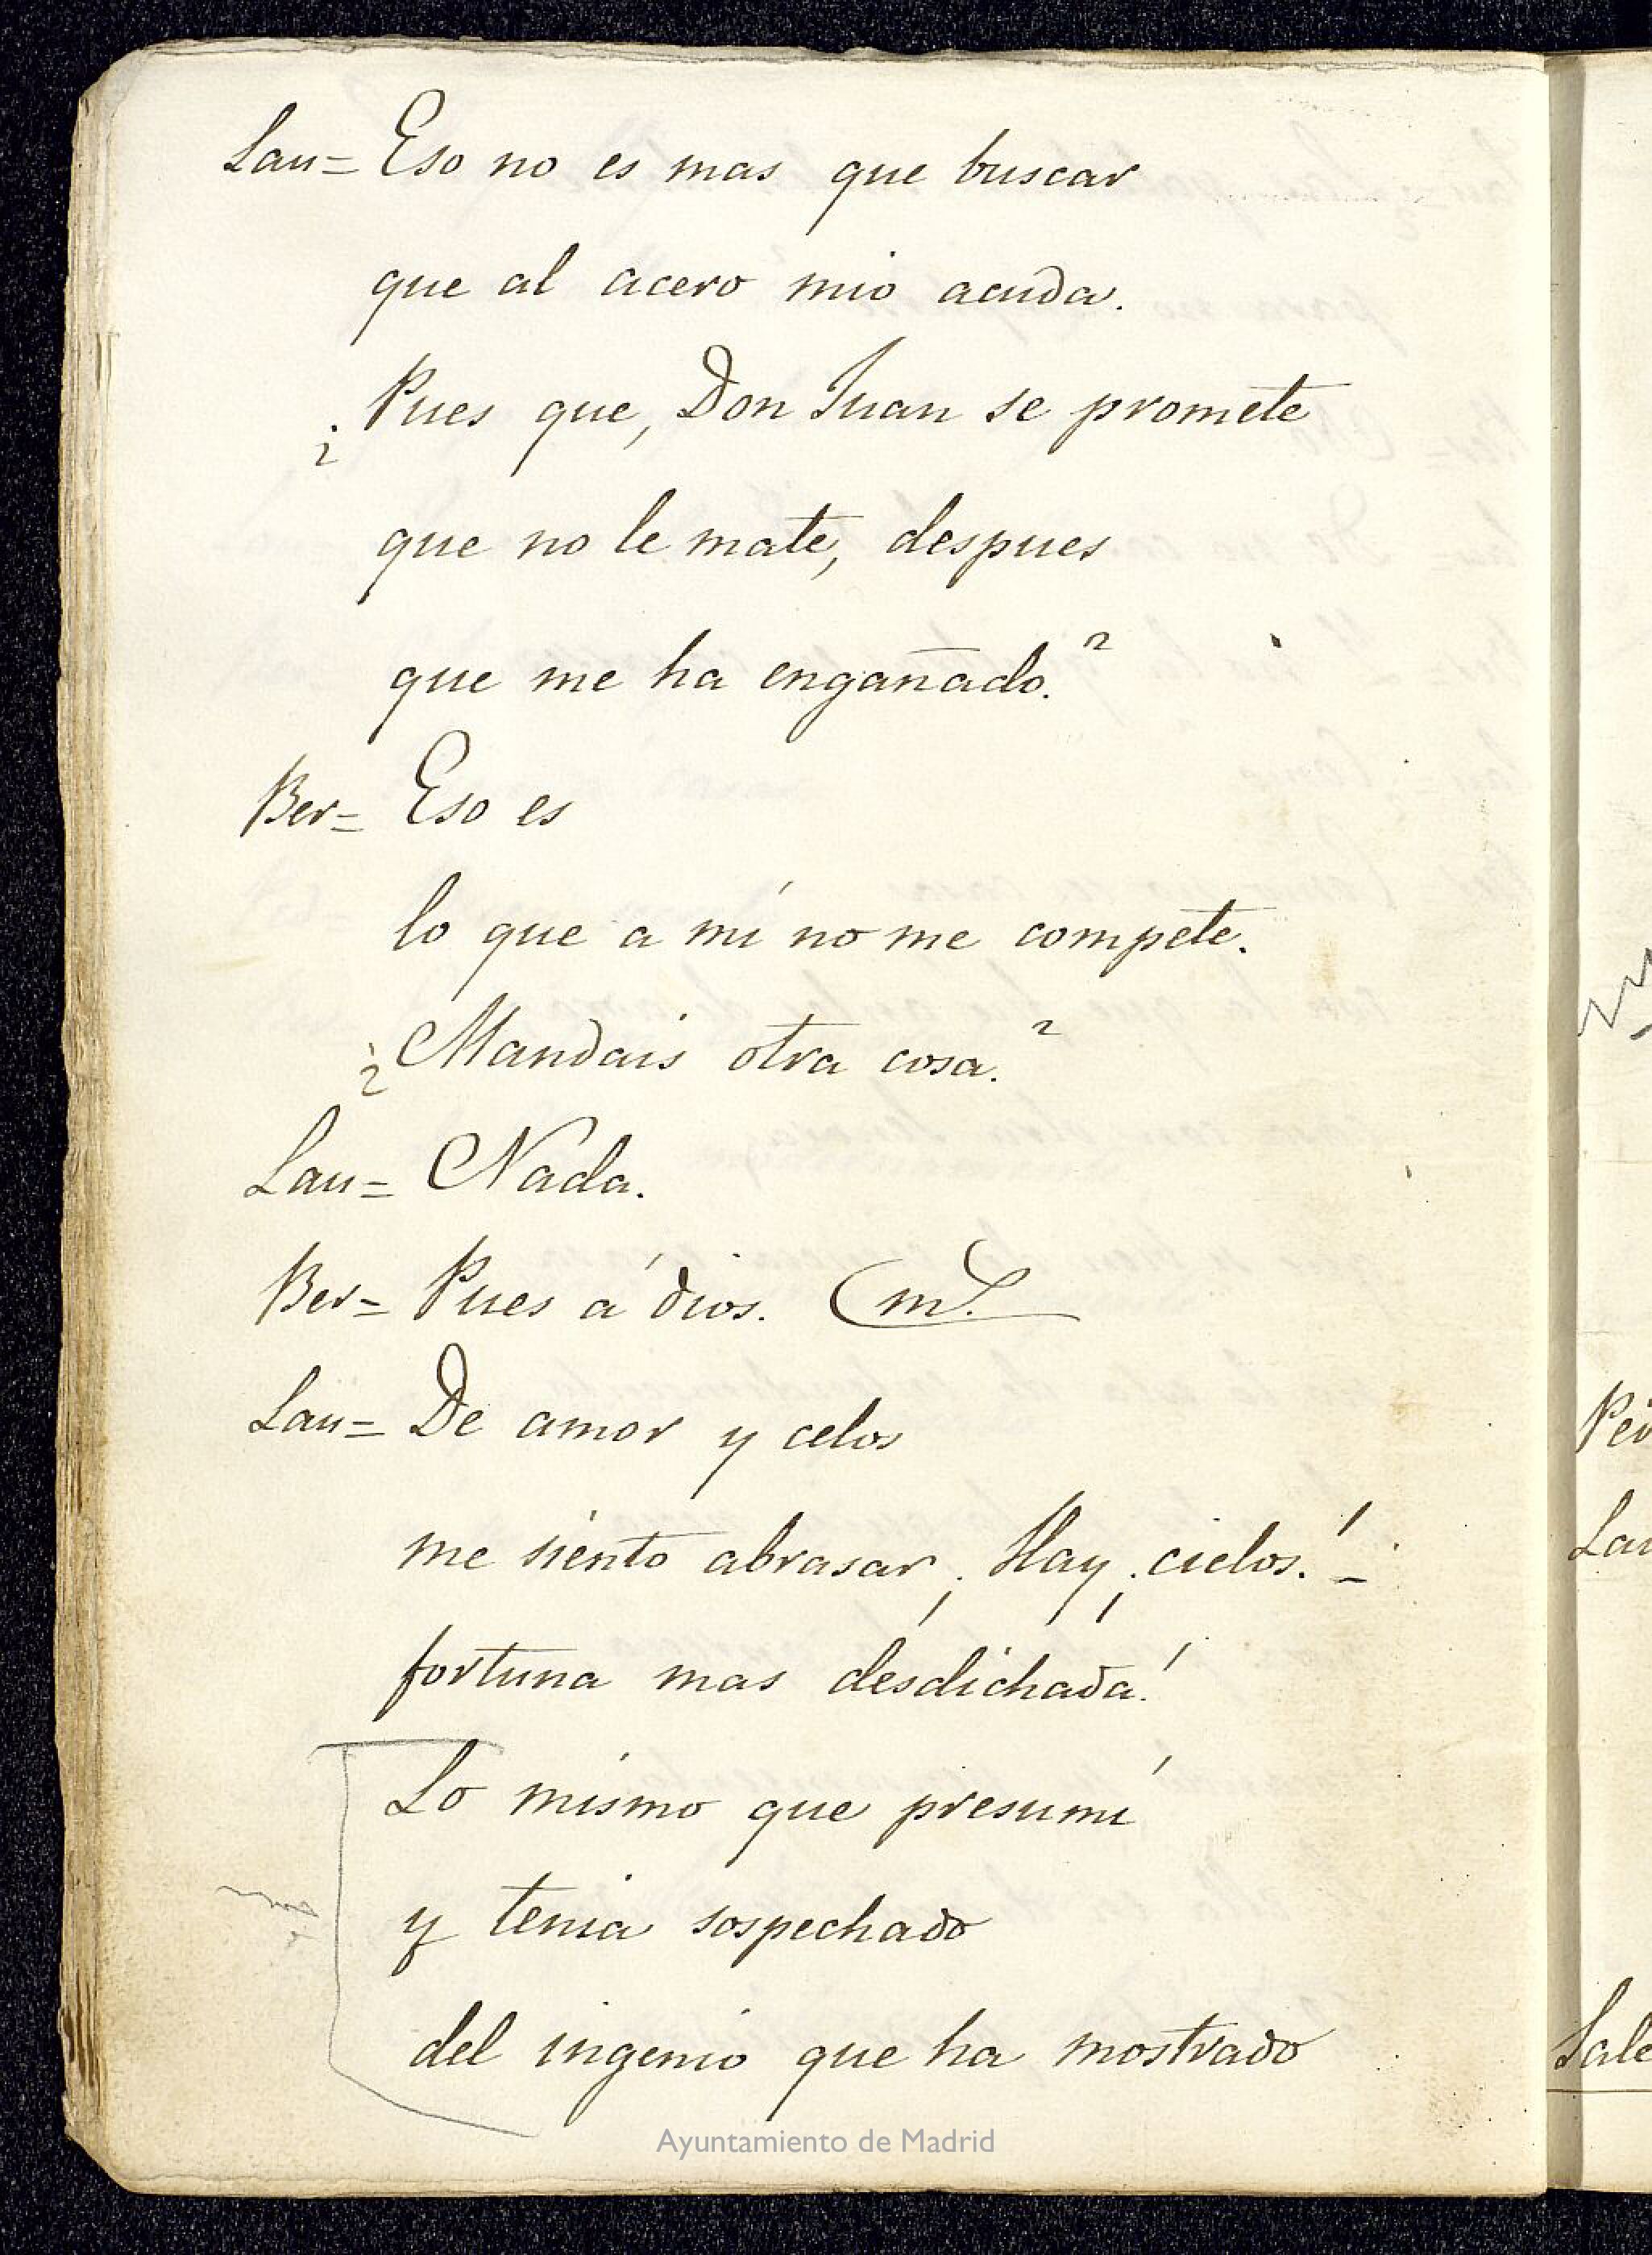 Lau= Eso no es mas que buscar
que al acero mio acuda.
¿Pues que, Don Juan se promete
que no le mate, despues
que me ha engañado.?
Ber= Eso es
lo que a mí no me compete.
¿Mandais otra cosa.?
Lau= Nada.
Ber= Pues á dios. (m
Lau= De amor y celos
me siento abrasar ¡Hay ¡cielos.! –
fortuna mas desdichada!
Lo mismo que presumí
y tenia sospechado
del ingenio que ha mostrado
Ayuntamiento de Madrid
Lau
Sale